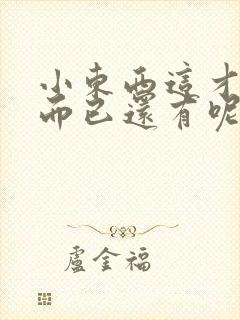 小東西這才
而已還有呢
盧金福